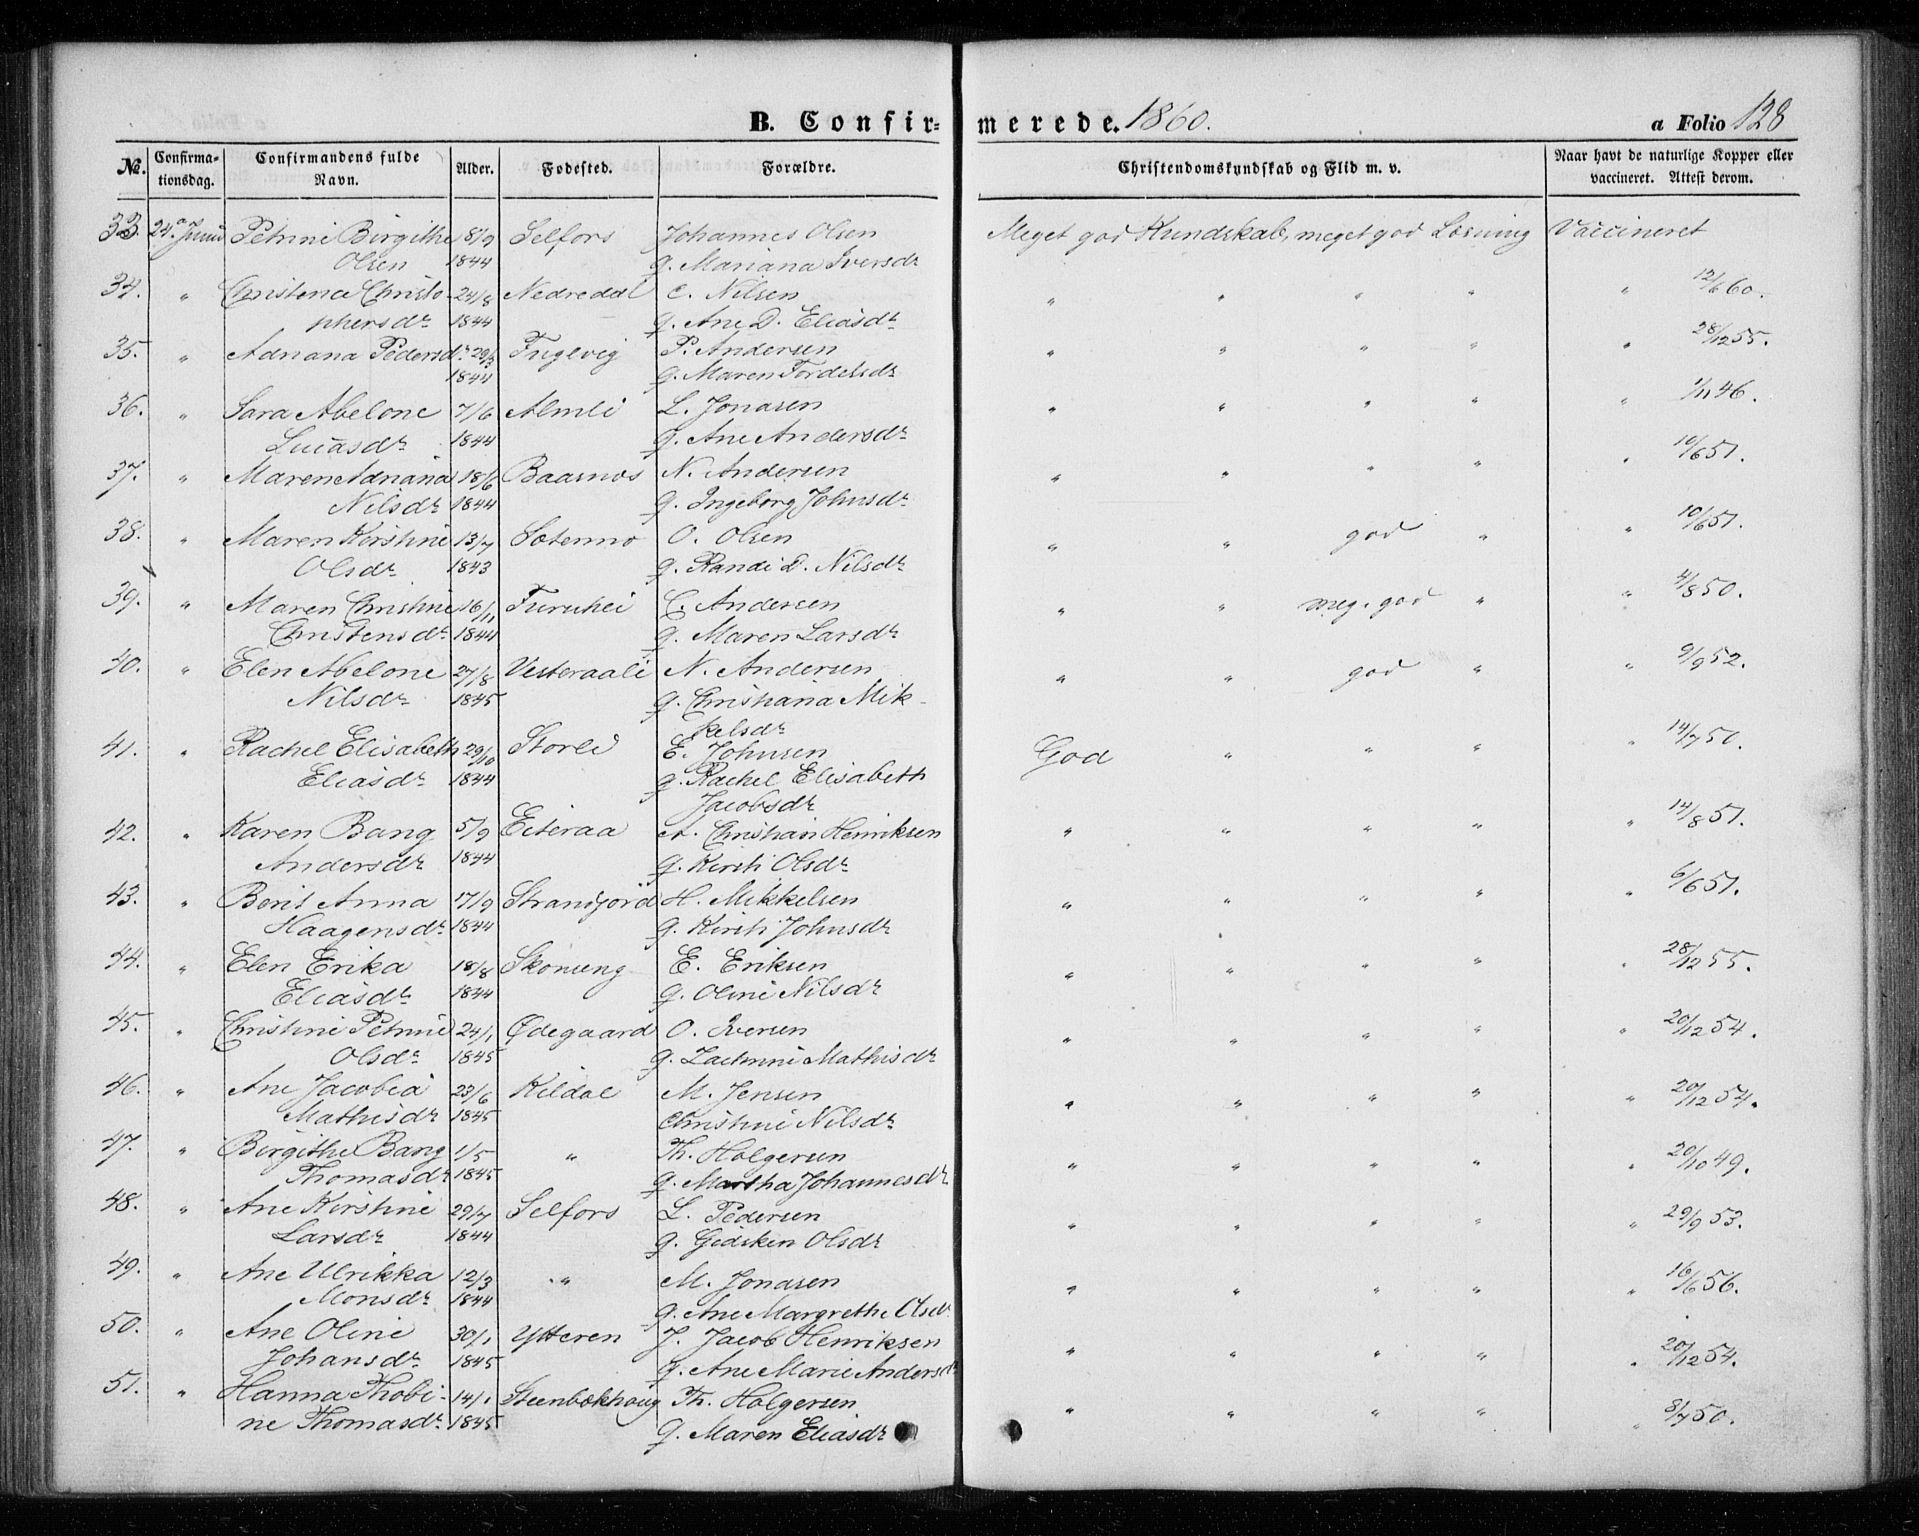 B. Confir- merede. 1860. a Folio 128
No. Confirma- tionsdag. Confirmandens fulde Navn. Alder. Fødested. Forældre. Christendomskundskab og Flid m. v. Naar havt de naturlige Kopper eller vaccineret. Attest derom.
33. 24. Juni Petrine Birgithe 18/9 Selfors Johannes Olsen Meget god Kundskab, meget god Læsning Vaccineret
Olsen 1844 g. Mariana Iversdr
34. " Christence Christo- 24/8 Nedredal C. Nilsen " " " " " 12/6 60.
phersdr 1844 g. Ane D. Eliasdr
35. " Adriana Pedersdr 29/3 Fuglvig P. Andersen " " " " " 28/12 55.
1844 g. Maren Tordelsdr
36. " Sara Abelone 7/6 Almli L. Jonasen " " " " " 1/11 46.
Lucasdr 1844 g. Ane Andersdr
37. " Maren Adriana 18/6 Baasmos N. Andersen " " " " " 10/6 51.
Nilsdr 1844 g. Ingeborg Johnsdr
38. " Maren Kirstine 13/7 O. Olsen " " god " " 10/6 51.
Olsdr 1843 g. Randi D. Nilsdr
39. " Maren Christine 16/11 Furuhei C. Andersen " " meg. god " " 4/8 50.
Christensdr 1844 g. Maren Larsdr
40. " Elen Abelone 27/8 Vesteraali N. Andersen " " god " " 9/9 52.
Nilsdr 1845 g. Christiana Mik-
kelsdr
41. " Rachel Elisabeth 29/10 Storli E. Johnsen God " " " " 14/7 50.
Eliasdr 1844 g. Rachel Elisabeth
Jacobsdr
42. " Karen Bang 5/9 Eiteraa A. Christian Henriksen " " " " " 14/8 51.
Andersdr 1844 g. Kirsti Olsdr
43. " Berit Anna 17/9 Strandjord H. Mikkelsen " " " " " 6/6 51.
Haagensdr 1844 g. Kirsti Johnsdr
44. " Elen Erika 18/8 Skonseng E. Eriksen " " " " " 28/12 55.
Eliasdr 1844 g. Oline Nilsdr
45. " Christine Petrine 24/1 Ødegaard O. Iversen " " " " " 20/12 54.
Olsdr 1845 g. Mathisdr
46. " Ane Jacobia 23/6 Kildal M. Jensen " " " " " 20/12 54.
Mathisdr 1845 Christine Nilsdr
47. " Birgithe Bang 1/5 " Th. Holgersen " " " " " 20/10 49.
Thomasdr 1845 g. Martha Johannesdr
48. " Ane Kirstine 29/7 Selfors L. Pedersen " " " " " 29/9 53.
Larsdr 1844 g. Gidsken Olsdr
49. " Ane Ulrikka 12/3 " M. Jonasen " " " " " 16/6 56.
Monsdr 1844 g. Ane Margrethe Olsdr
50. " Ane Oline 30/1 Ytteren J. Jacob Henriksen " " " " " 20/12 54.
Johansdr 1845 g. Ane Marie Andersdr
51. " Hanna Thobi- 14/1 Steenbekhaug Th. Holgersen " " " " " 8/7 50.
ne Thomasdr 1845 g. Maren Eliasdr